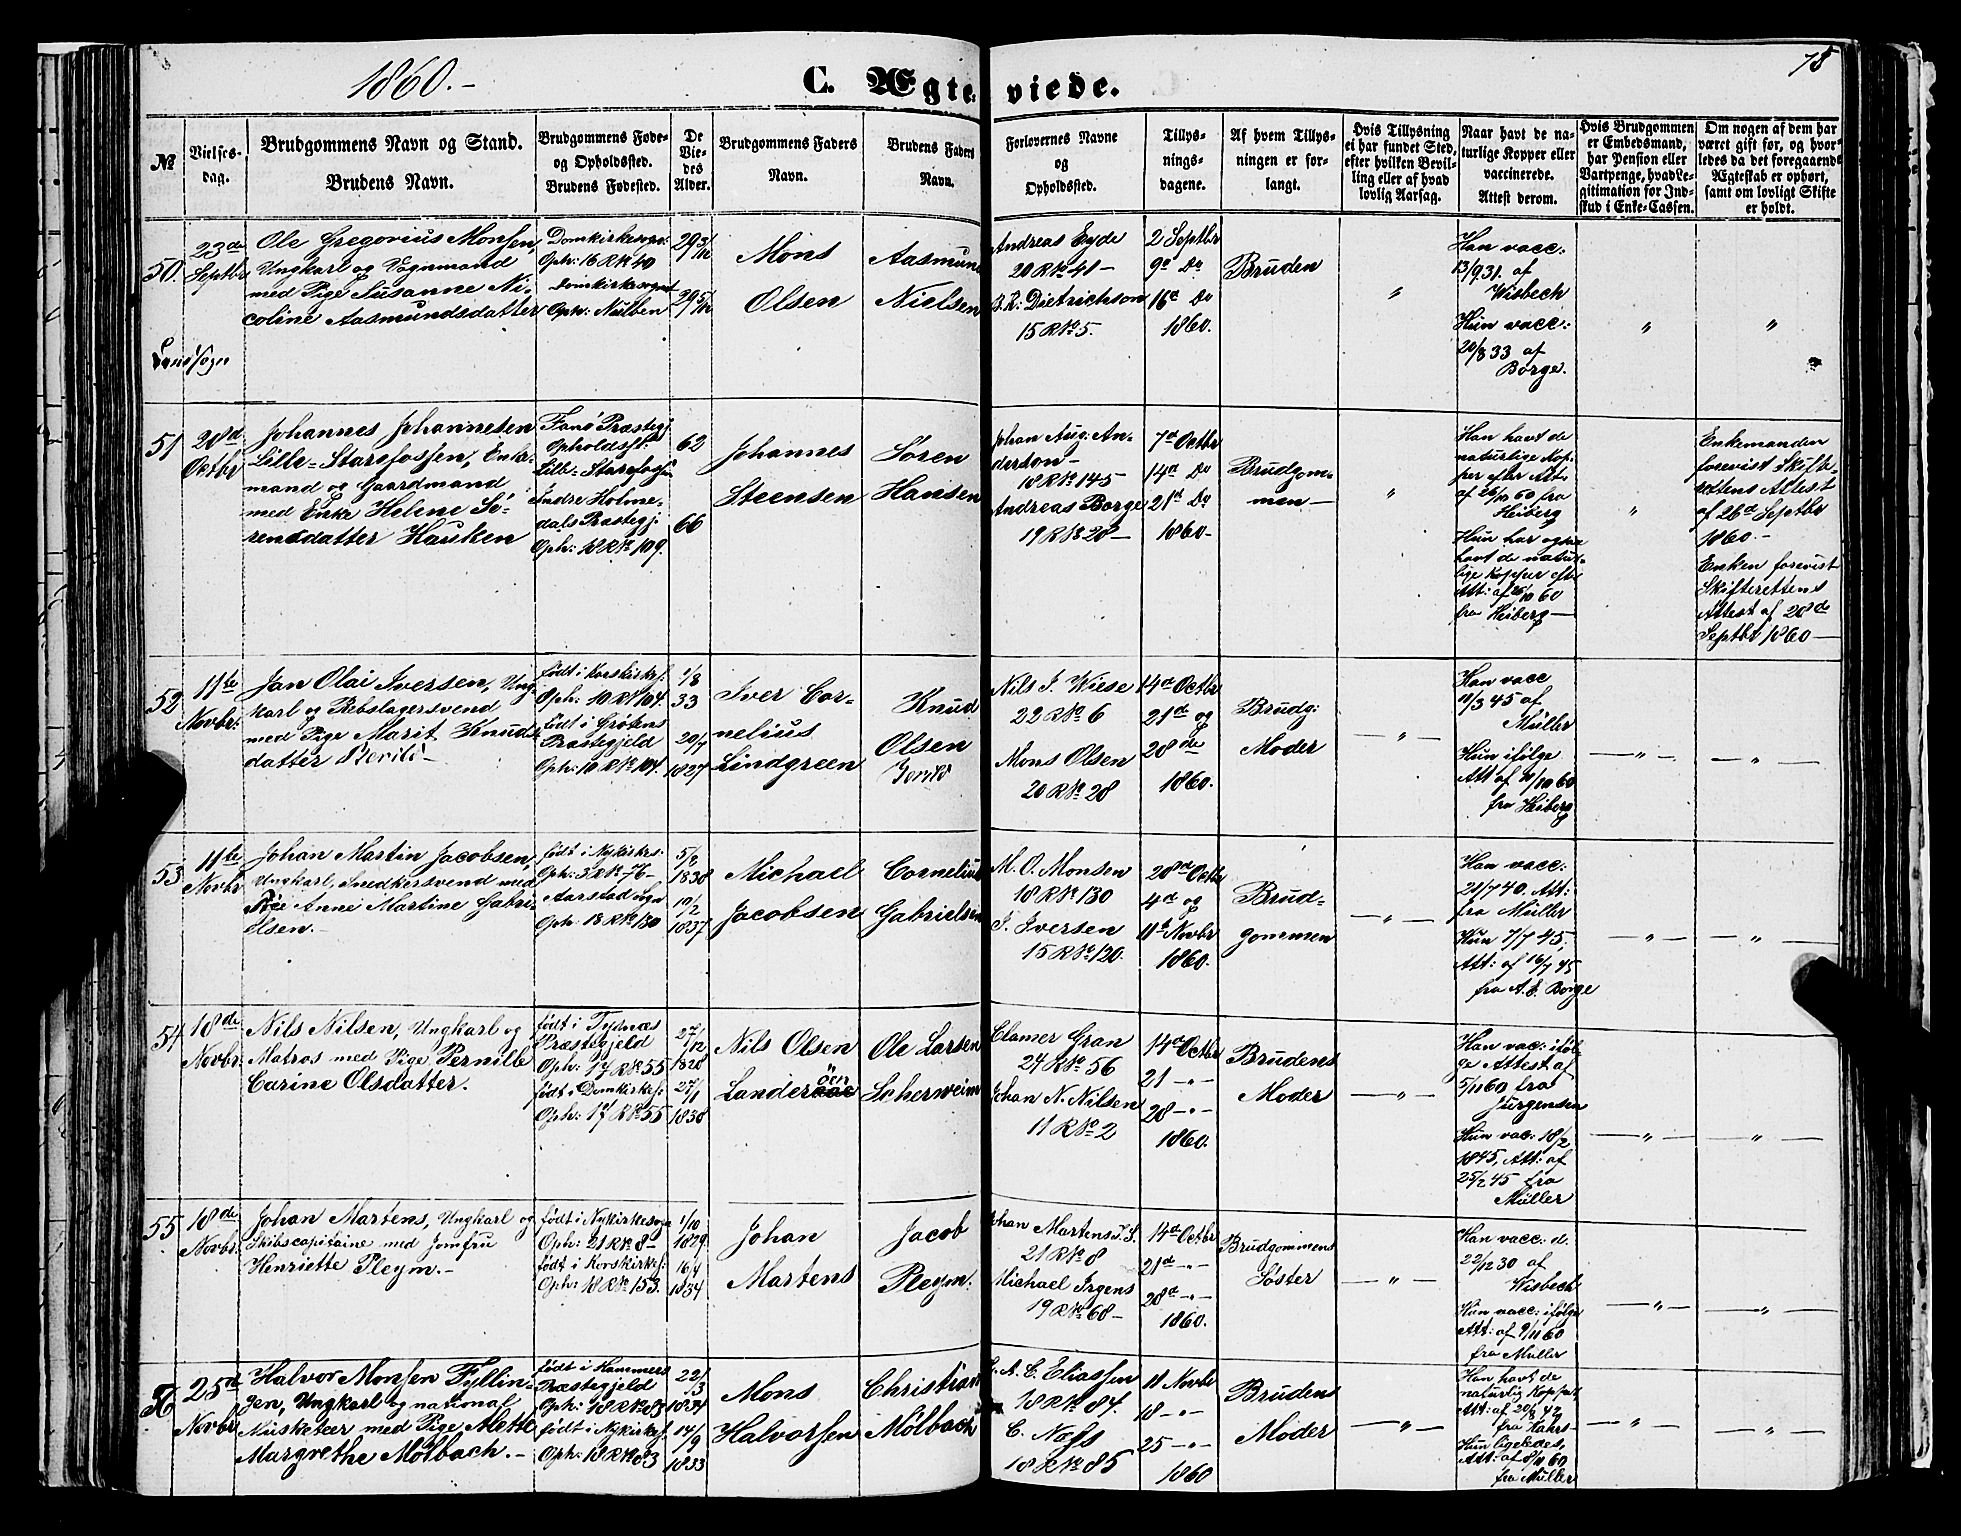 1860.-
C. Ægteviede.
75
№
Vielses-
dag.
Brudgommens Navn og Stand.
Brudens Navn.
Brudgommens Føde-
og Opholdssted.
Brudens Fødested.
De
Vie-
des
Alder.
Brudgommens Faders
Navn.
Brudens Faders
Navn.
Forlovernes Navne
og
Opholdssted.
Tillys-
nings-
dagene.
Af hvem Tillys-
ningen er for-
langt.
Hvis Tillysning
ei har fundet Sted,
efter hvilken Bevil-
ling eller af hvad
lovlig Aarsag.
Naar havt de na-
turlige Kopper eller
vaccinerede.
Attest derom.
Hvis Brudgommen
er Embedsmand,
har Pension eller
Vartpenge, hvad Le-
gitimation for Ind-
skud i Enke-Cassen.
Om nogen af dem har
været gift før, og hvor-
ledes da det foregaaende
Ægteskab er ophørt,
samt om lovligt Skifte
er holdt.
50.
Landsogn
23de
Septbr
Ole Gregorius Monsen,
Ungkarl og Vognmand
med Pige Susanne Ni-
coline Aasmundsdatter
Domkirkesogn:
Oph: 16 R № 40
Domkirkesognet
Oph: Nulben
29 3/12
29 5/12
Mons
Olsen
Aasmund
Nielsen
Andreas Eyde
20 R № 41 -
Dietrichson
15 R № 5.
2 Septbr
9de Do
16de Do
1860.
Bruden
"
Han vacc:
13/9 31. af
Wisbech
Hun vacc:
20/8 33 af
Borge.
"
"
51
28d
Octbr
Johannes Johannesen
Lille-Starefossen, Enke-
mand og Gaardmand
med Enke Helene Sö-
rensdatter Hauken
Fanø Præstegj.
Opholdsst:
Lille-Starefossen
Indre Holme-
dals Præstegj:
Oph: 18 R № 109.
62
66
Johannes
Steensen
Søren
Hansen
Johan Aug: An-
derson -
18 R № 145 -
Andreas Borge
19 R № 28 -
7de Octbr
14de Do
21de Do
1860.
Brudgom-
men -
"
Han havt de
naturlige Kop-
per efter Att:
af 26/10 60 fra
Heiberg
Hun har ogsaa
havt de natur-
lige Kopper efter
Att: af 26/10 60
fra Heiberg -
"
Enkemanden
forevist Skifte-
rettens Attest
af 26de Septbr
1860. -
Enken forevist
Skifterettens
Attest af 28de
Septbr 1860 -
52
11te
Novbr:
Jan Olai Iversen, Ung-
karl og Rebslagersvend
med Pige Marit Knuds-
datter
født i Korskirkes:
Oph: 10 R № 104.
født i
Præstegjeld
Oph: 10 R № 104.
1/8
33
20/7
1827
Iver Cor-
nelius
Lindgreen
Knud
Olsen
Nils J. Wiese
22 R № 6
Mons Olsen
20 R № 28
14de Octbr
21de og
28de
1860.
Brudg:
Moder
- " -
Han vacc
11/3 45 af
Müller
Hun ifølge
Att af 11/10 60
fra Heiberg
- " -
- " -
53
11te
Novbr
Johan Martin Jacobsen,
Ungkarl, Snedkersvend med
Pige Anne Martine Gabri-
elsen. -
født i Nykirkes:
Oph: 3 R № 76 -
Aarstad Sogn
Oph: 18 R № 130
5/2
1838
19/2
1837
Michael
Jacobsen
Cornelius
Gabrielsen
M. O. Monsen
18 R № 130
I. Iversen
15 R № 120.
28de Octbr
4de og
11te Novbr
1860.
Brud-
gommen
- " -
Han vacc:
21/7 40. Att:
fra Müller
Hun 7/7 45.
Att: af 16/7 45
fra A. J. Borge
- " -
- " -
54
18de
Novbr:
Nils Nilsen, Ungkarl og
Matros med Pige Pernille
Carine Olsdatter.
født i Tydnæs
Præstegjeld
Oph: 17 R № 55
født i Domkirkes:
Oph: 17 R № 55
27/12
1828
27/1
1838
Nils Olsen
Lander
Ole Larsen
Scherweim
Clamer Gran
24 R № 56
Johan N. Nilsen
11 R № 2
14de Octbr
21 - " -
28 - " -
1860.
Brudens
Moder
- " -
Han vac: iføl-
ge Attest af
5/11 60 fra
Jürgensen
Hun vac: 18/2
1845, Att: af
25/2 45 fra
Müller
- " -
- " -
55
18de
Novbr:
Johan Martens, Ungkarl og
Skibscapitaine med Jomfru
Henriette Pleym. -
født i Nykirkesogn
Oph: 21 R № 8 -
født i Korskirkes:
Oph: 18 R № 153.
1/10
1829
16/4
1834
Johan
Martens
Jacob
Pleym.
Johan Martens J. S.
21 R № 8
Michael Irgens
19 R № 68 -
14de Octbr
21de - " -
28de - " -
1860.
Brudgommens
Søster
- " -
Han vacc: d.
22/12 30 af
Wisbech
Hun vacc: ifølge
Att: af 9/11 60
fra Müller
- " -
- " -
56
25de
Novbr
Halvor Monsen Fyllin-
gen, Ungkarl og national
Musketeer med Pige Alette
Margrethe Mølbach. -
født i Hammers
Præstegjeld
Oph: 18 R № 83
født i Nykirkes:
Oph: 18 R № 83
22/3
1834
14/9
1833
Mons
Halvorsen
Christian
Mølbach
A. C. Eliassen
18 R № 84.
C. Næss
18 R № 85
11 Novbr
18 - " -
25 - " -
1860
Brudens
Moder
- " -
Han havt de
naturlig Kopper,
Att: af 20/8 42
fra Kahrs -
Hun ligeledes,
Att: af 8/11 60
fra Müller
- " -
- " -